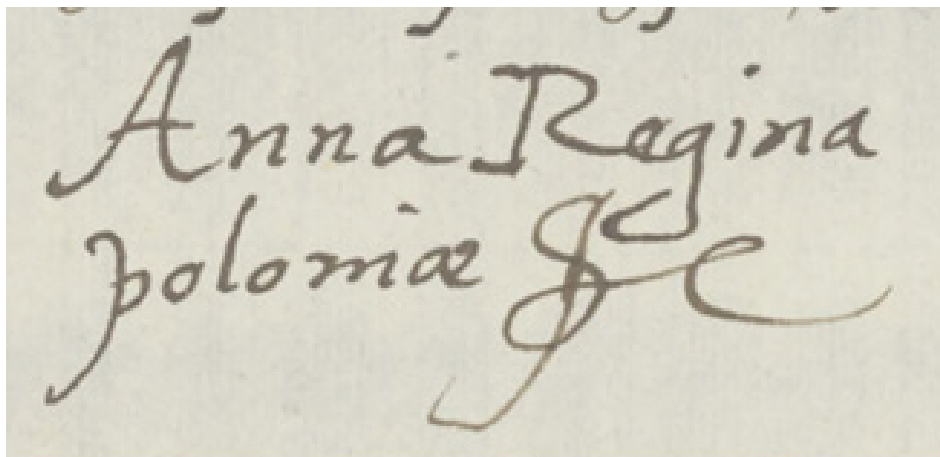 Anna Regina
poloniæ &c